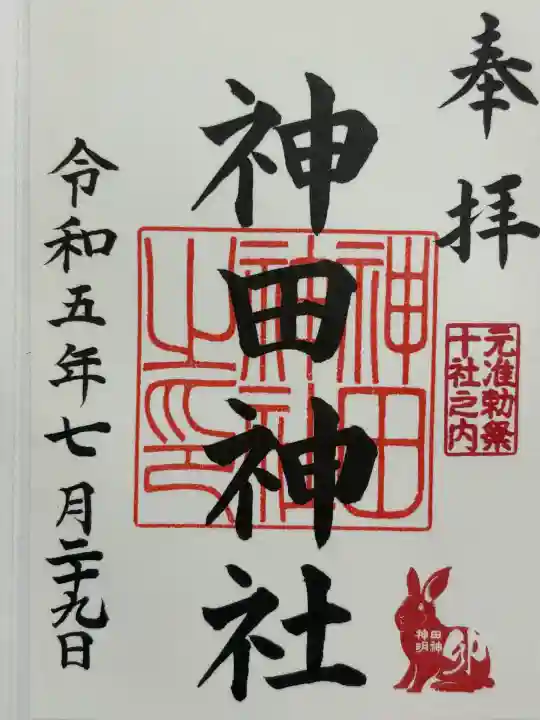 奉拝
元准勅祭
十社之内
神田神社
神田
神社
之印
神田
明神
卯
令和五年七月二十九日